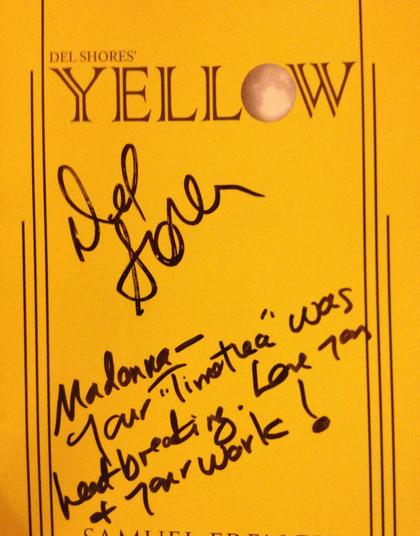 DEL SHORES'
YELLOW
Del
Shores
Madonna—
your "Timothea" was
heartbreaking. Love you
+ your work!
SAMUEL FRENCH